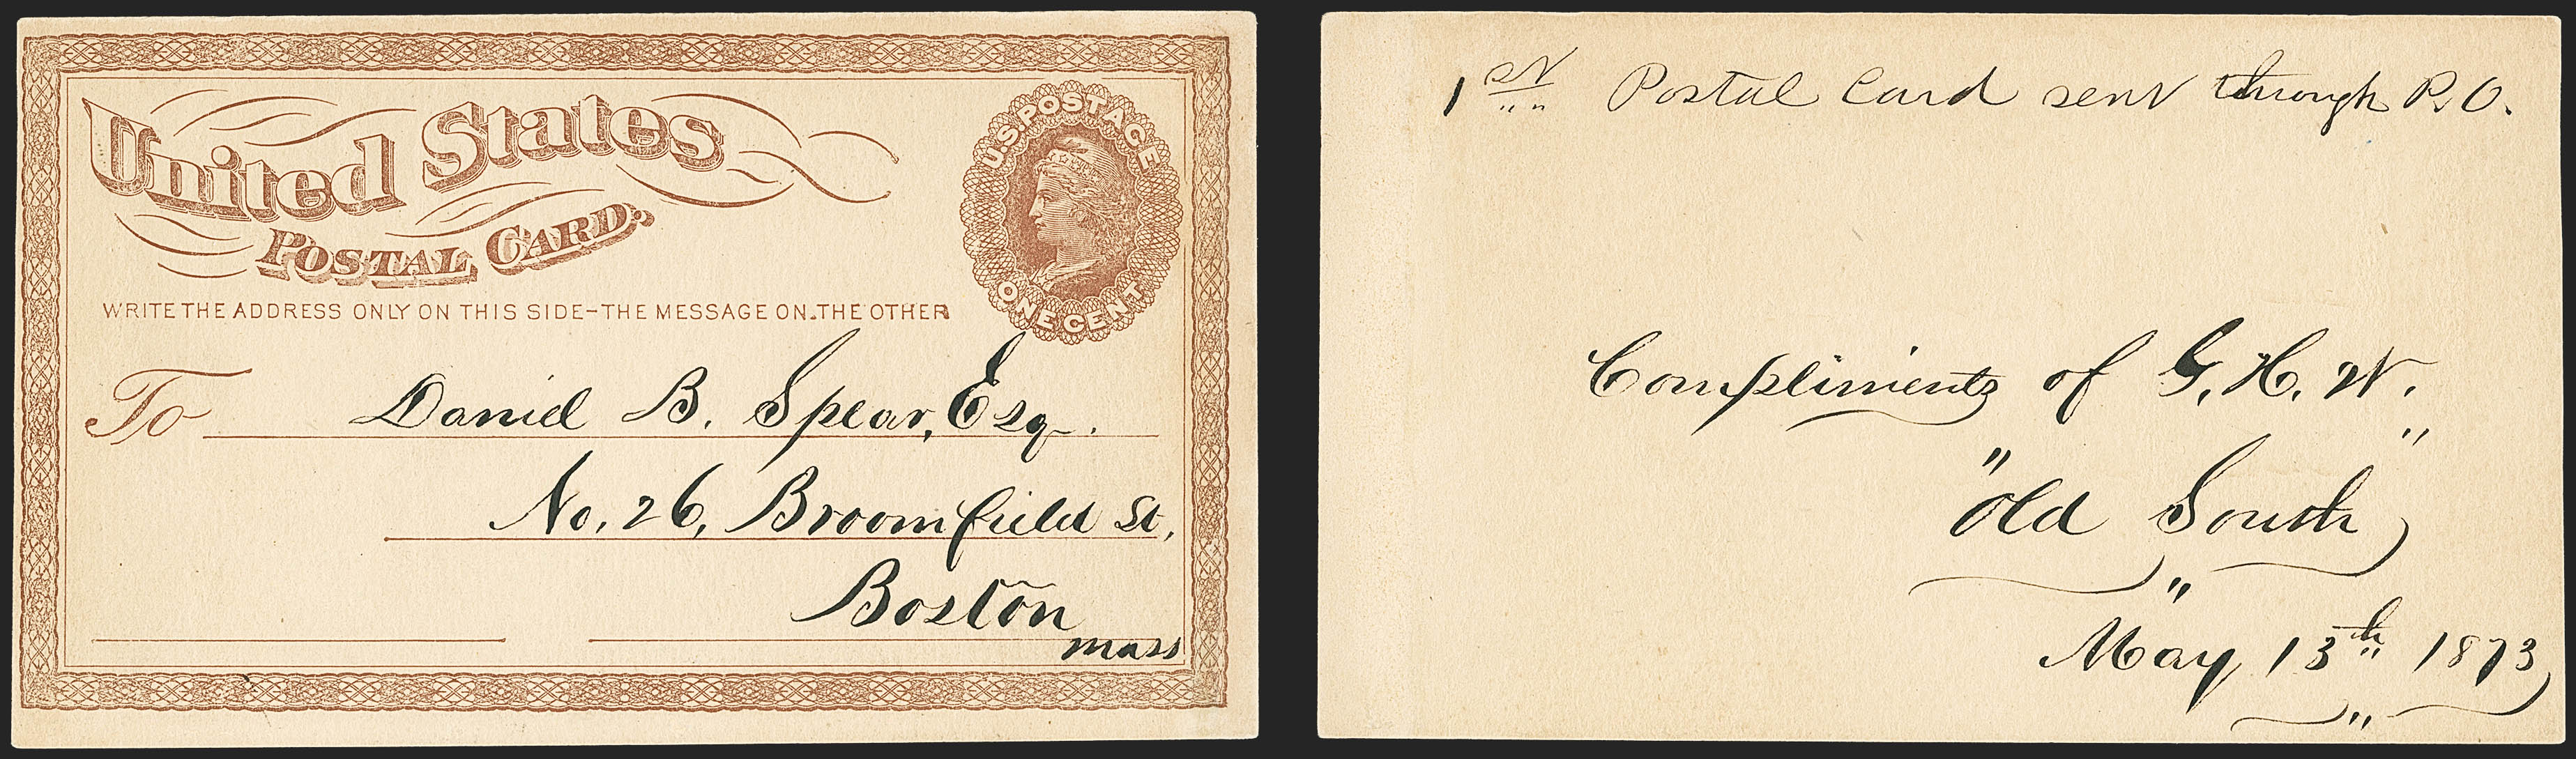 United States
POSTAL CARD.
U.S. POSTAGE
ONE CENT
WRITE THE ADDRESS ONLY ON THIS SIDE-THE MESSAGE ON THE OTHER
To Daniel B. Spear, Esq.
No. 26, Broomfield St,
Boston
Mass
1st Postal Card sent through P.O.
Compliments of G. H. W.
"Old South"
May 13th 1873